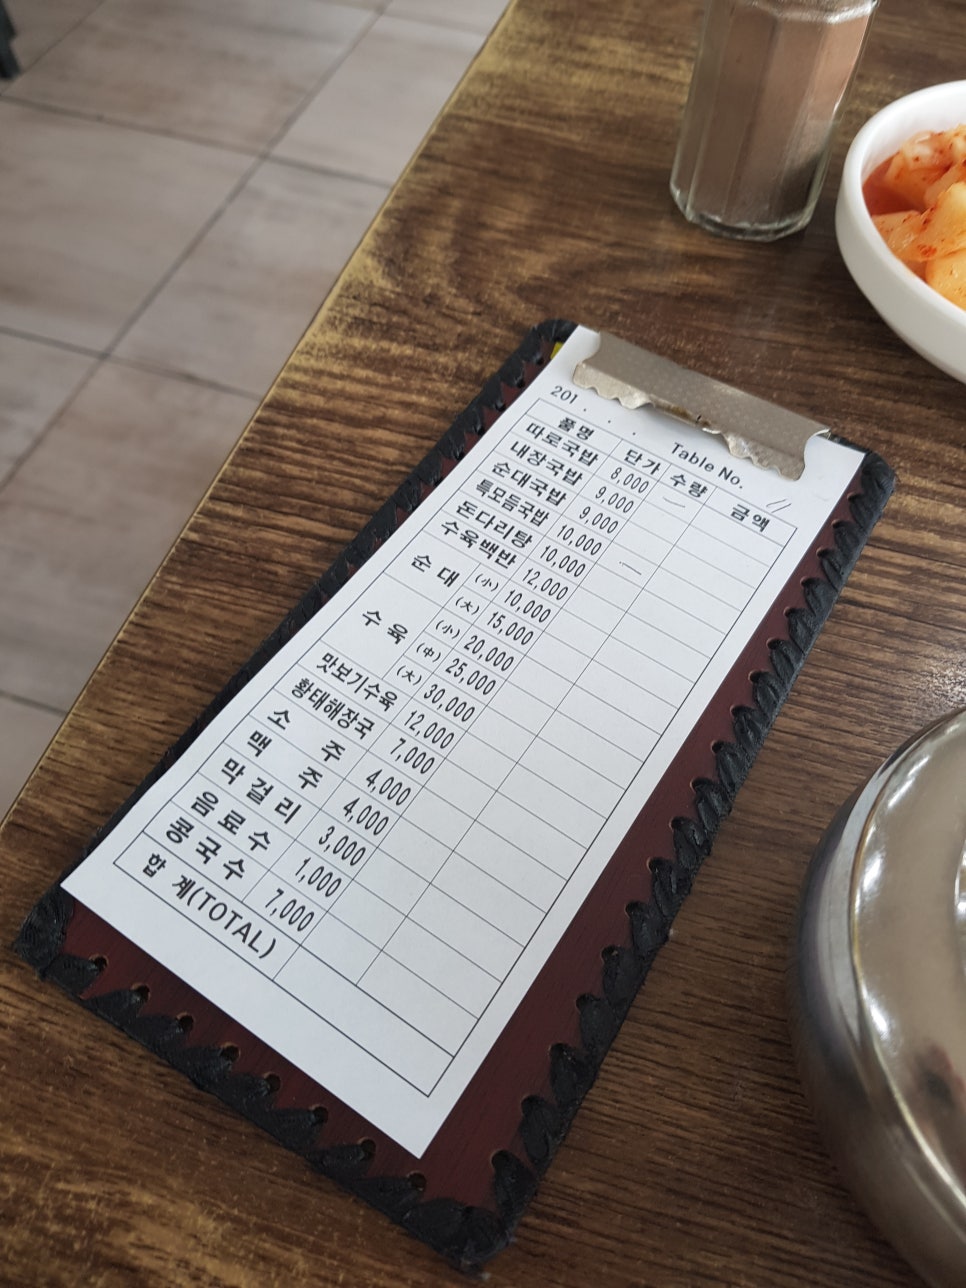 201 . . .
Table No. 11
품명 단가 수량 금액
따로국밥 8,000 一
내장국밥 9,000
순대국밥 9,000
특모듬국밥 10,000
돈다리탕 10,000 一
수육백반 12,000
순 대 (小) 10,000
(大) 15,000
수 육 (小) 20,000
(中) 25,000
(大) 30,000
맛보기수육 12,000
황태해장국 7,000
소 주 4,000
맥 주 4,000
막 걸 리 3,000
음 료 수 1,000
콩 국 수 7,000
합 계(TOTAL)